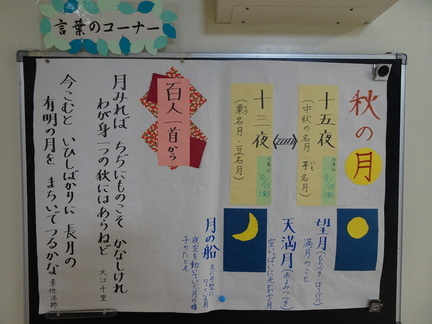 言葉のコーナー
秋の月
十五夜
(中秋の名月・芋名月)
十三夜
(栗名月・豆名月)
望月(もちづき・ぼうげつ)
満月のこと
天満月(あまみつづき)
空いっぱいに光がやく月
月の船
夜空を動いていく月の様
子のたとえ
百人一首から
月みれば ちぢにものこそ かなしけれ
わが身一つの秋にはあらねど
大江千里
今こむと いひしばかりに 長月の
有明の月を まちいでつるかな
素性法師